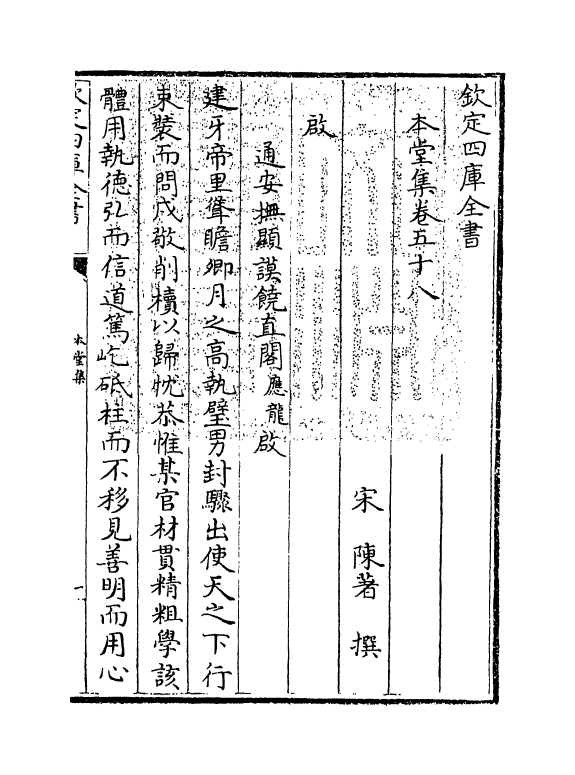 欽定四庫全書
本堂集卷五十八
宋 陳著 撰
啟
通安撫顯謨饒直閣應龍啟
建牙帝里聳瞻卿月之高執璧男封驟出使天之下行
束裝而問戍敬削牘以歸忱恭惟某官材貫精粗學該
體用執德弘而信道篤屹砥柱而不移見善明而用心
欽定四庫全書
本堂集
一